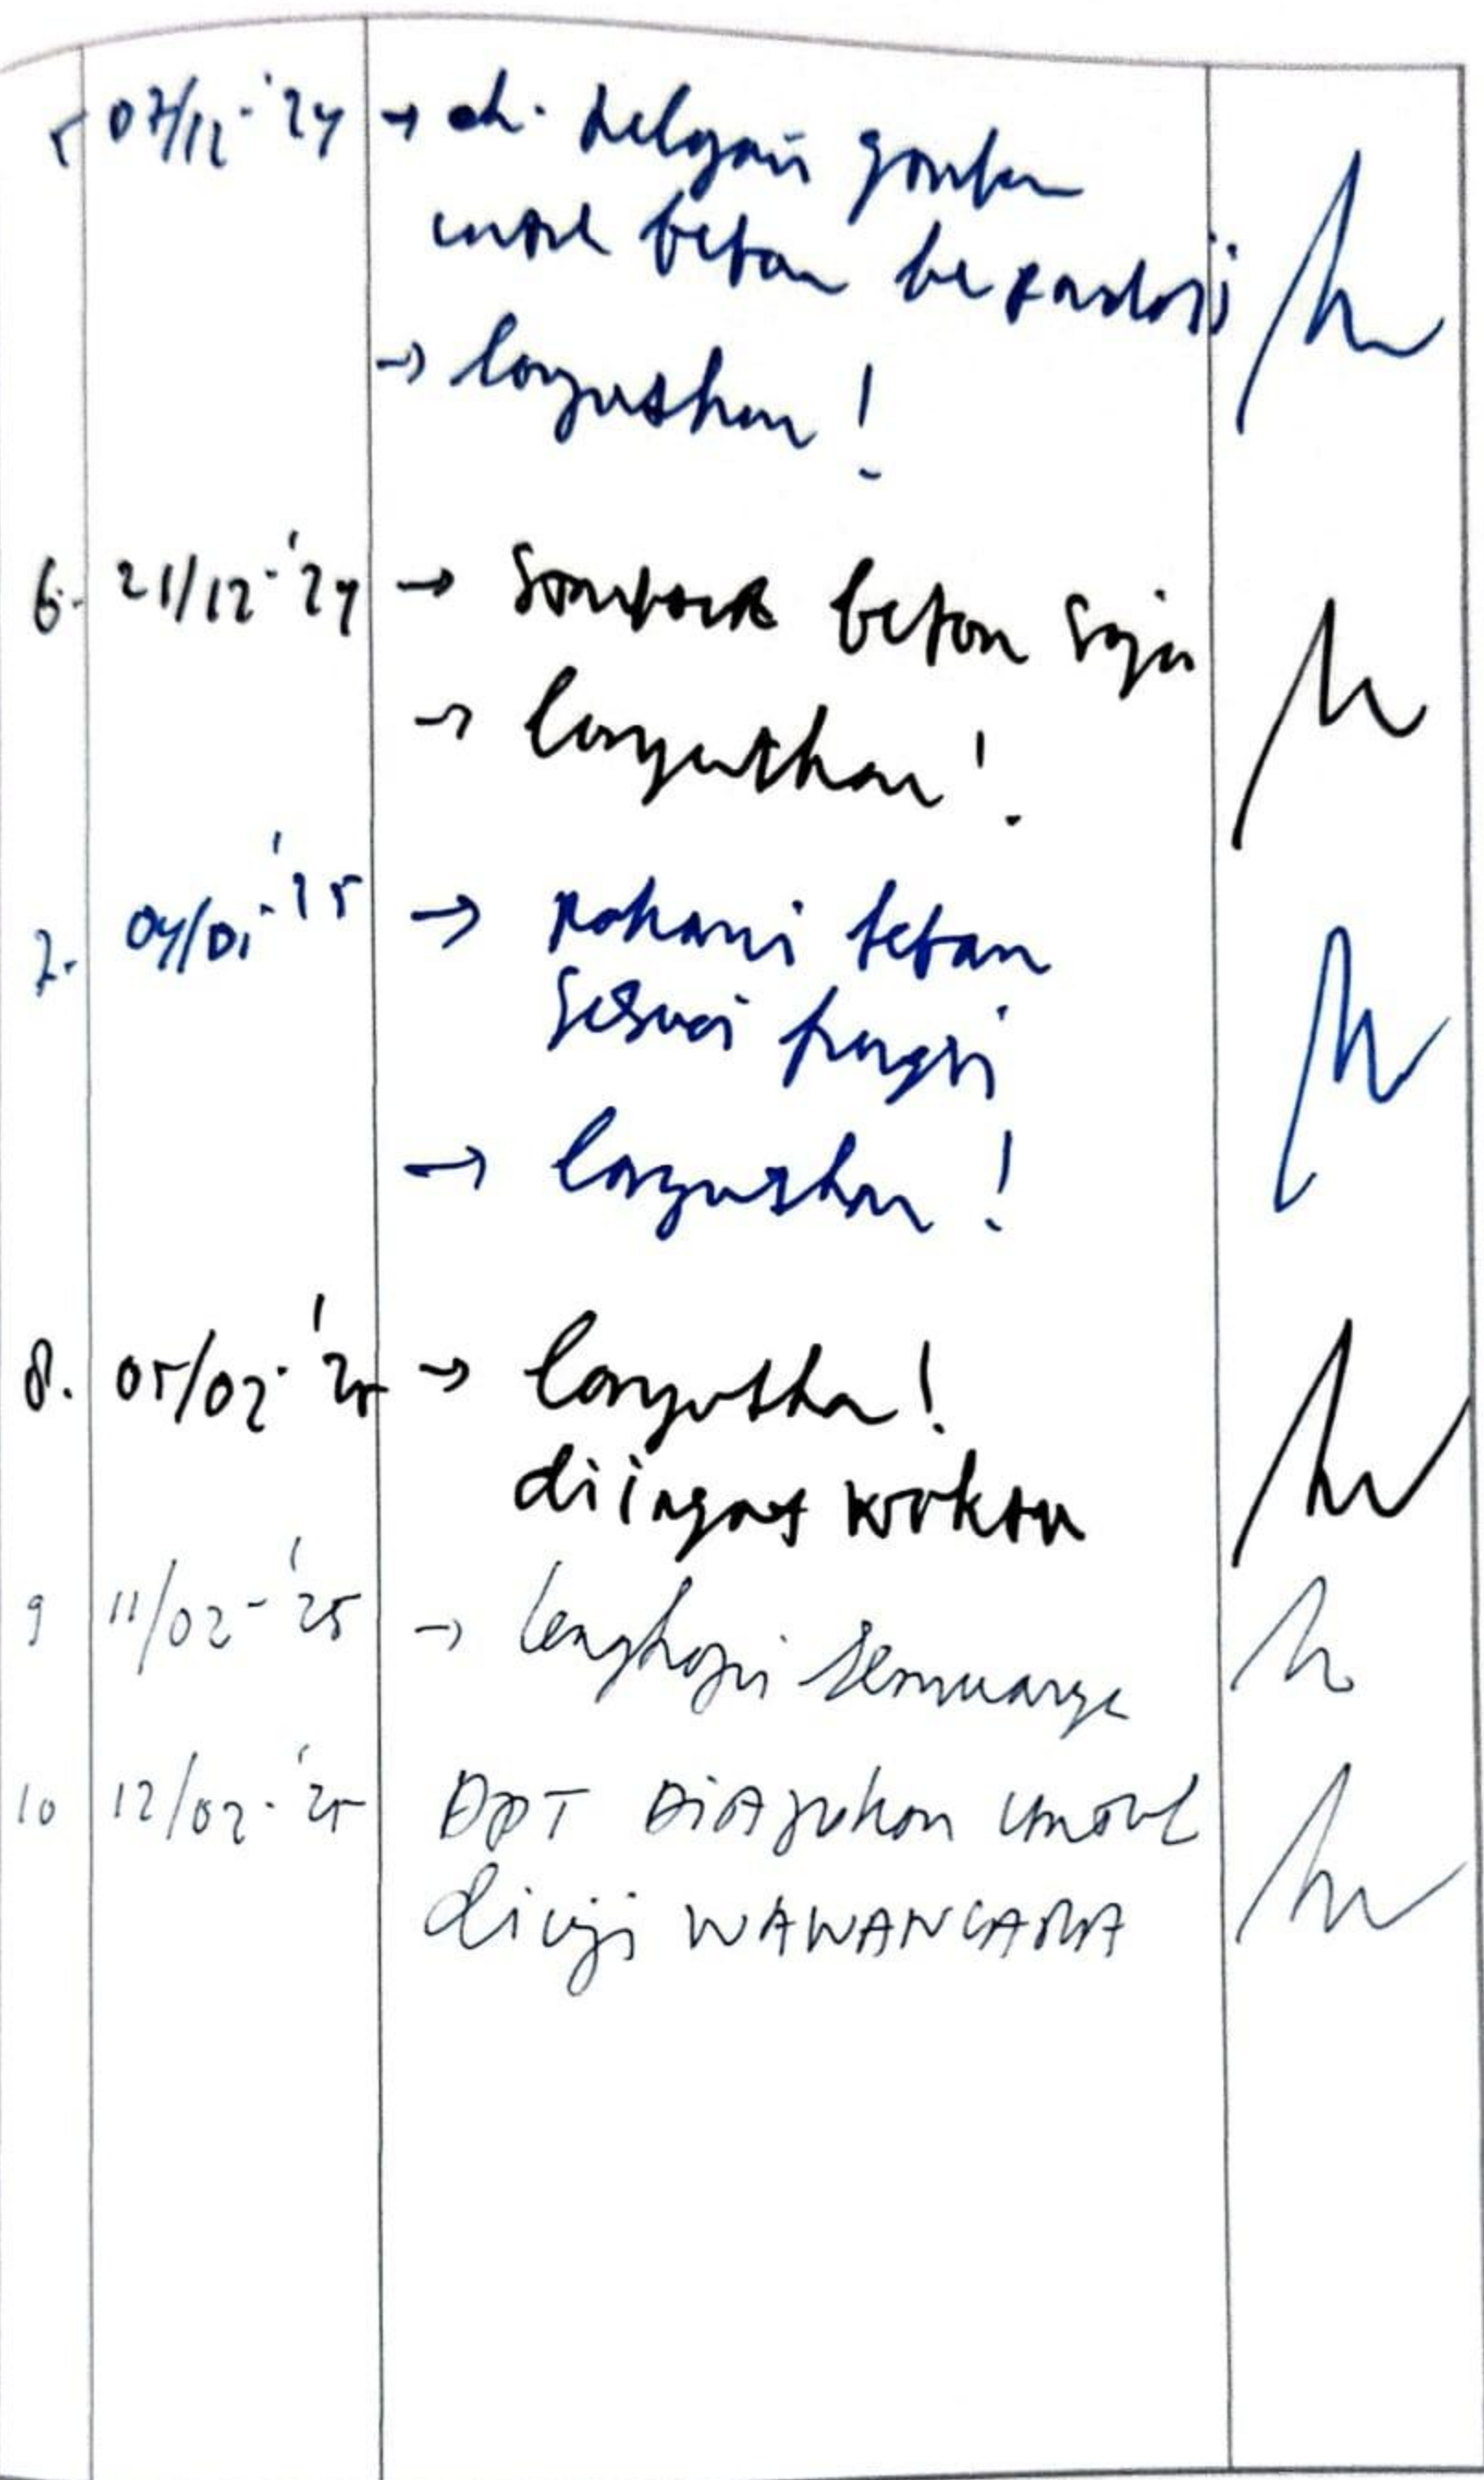 5 07/12-'24 → ok. dilengkapi gambar
untuk beton
→ lanjutkan!
6. 21/12-'24 → beton saja
→ lanjutkan!
7. 04/01-'25 → pahami beton
sesuai fungsi
→ lanjutkan!
8. 05/02-'25 → lanjutka!
diingat waktu
9 11/02-'25 → lengkapi semuanya
10 12/02-'25 DPT DiAjukan untuk
diuji WAWANCARA